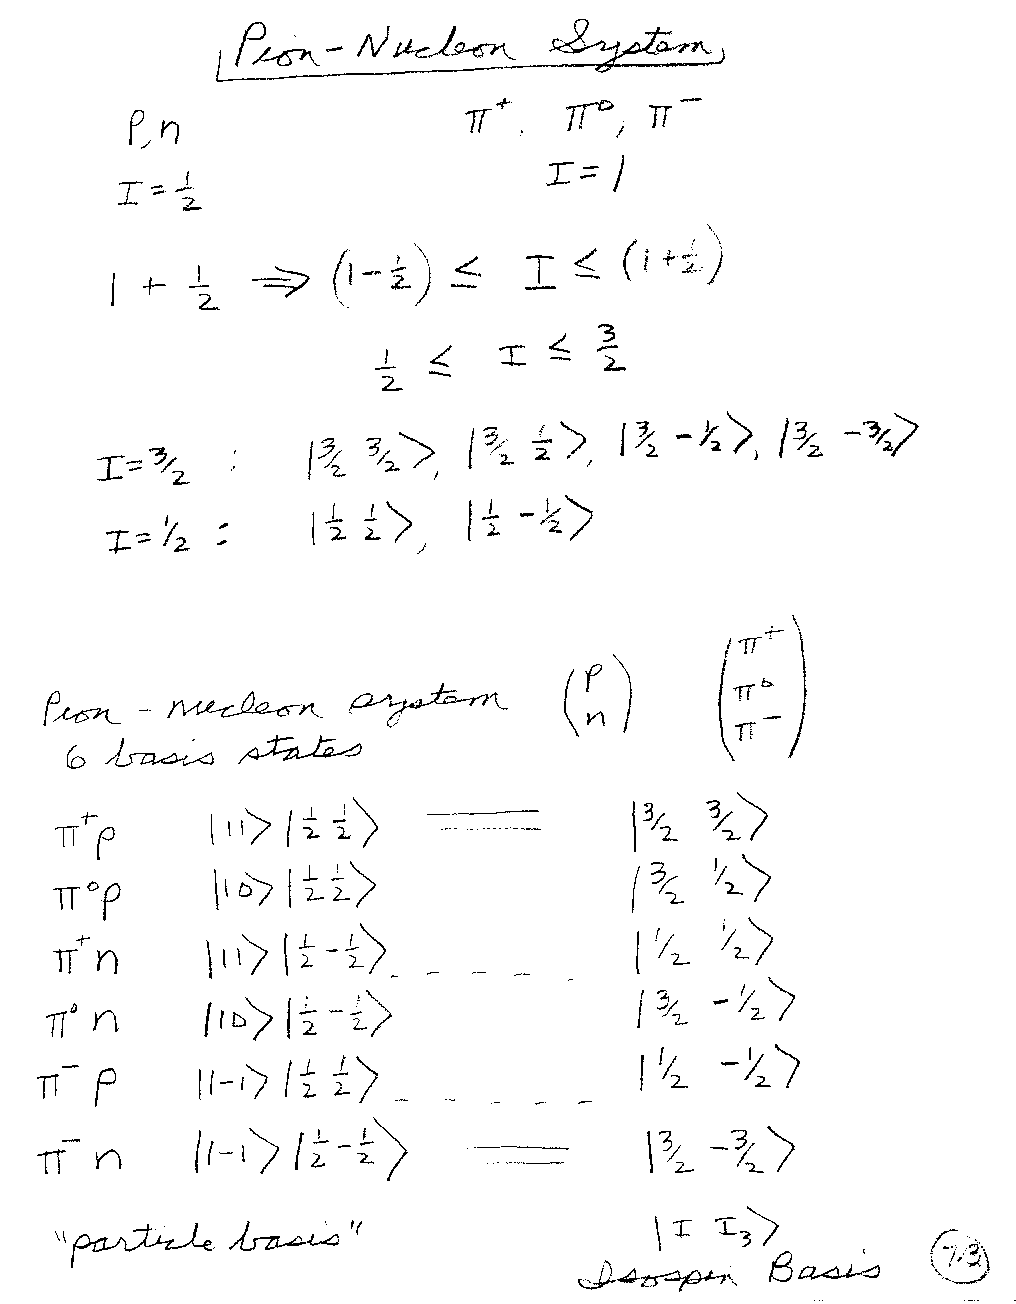 Pion-Nucleon System
p, n π⁺, π⁰, π⁻
I = 1/2 I = 1
1 + 1/2 ⇒ (1 - 1/2) ≤ I ≤ (1 + 1/2)
1/2 ≤ I ≤ 3/2
I = 3/2 : |3/2 3/2⟩, |3/2 1/2⟩, |3/2 -1/2⟩, |3/2 -3/2⟩
I = 1/2 : |1/2 1/2⟩, |1/2 -1/2⟩
Pion-nucleon system (p n) (π⁺ π⁰ π⁻)
6 basis states
π⁺p |11⟩|1/2 1/2⟩ = |3/2 3/2⟩
π⁰p |10⟩|1/2 1/2⟩ |3/2 1/2⟩
π⁺n |11⟩|1/2 -1/2⟩ - - - - - - |1/2 1/2⟩
π⁰n |10⟩|1/2 -1/2⟩ |3/2 -1/2⟩
π⁻p |1-1⟩|1/2 1/2⟩ - - - - - - |1/2 -1/2⟩
π⁻n |1-1⟩|1/2 -1/2⟩ = |3/2 -3/2⟩
"particle basis" |I I₃⟩
Isospin Basis
7.3